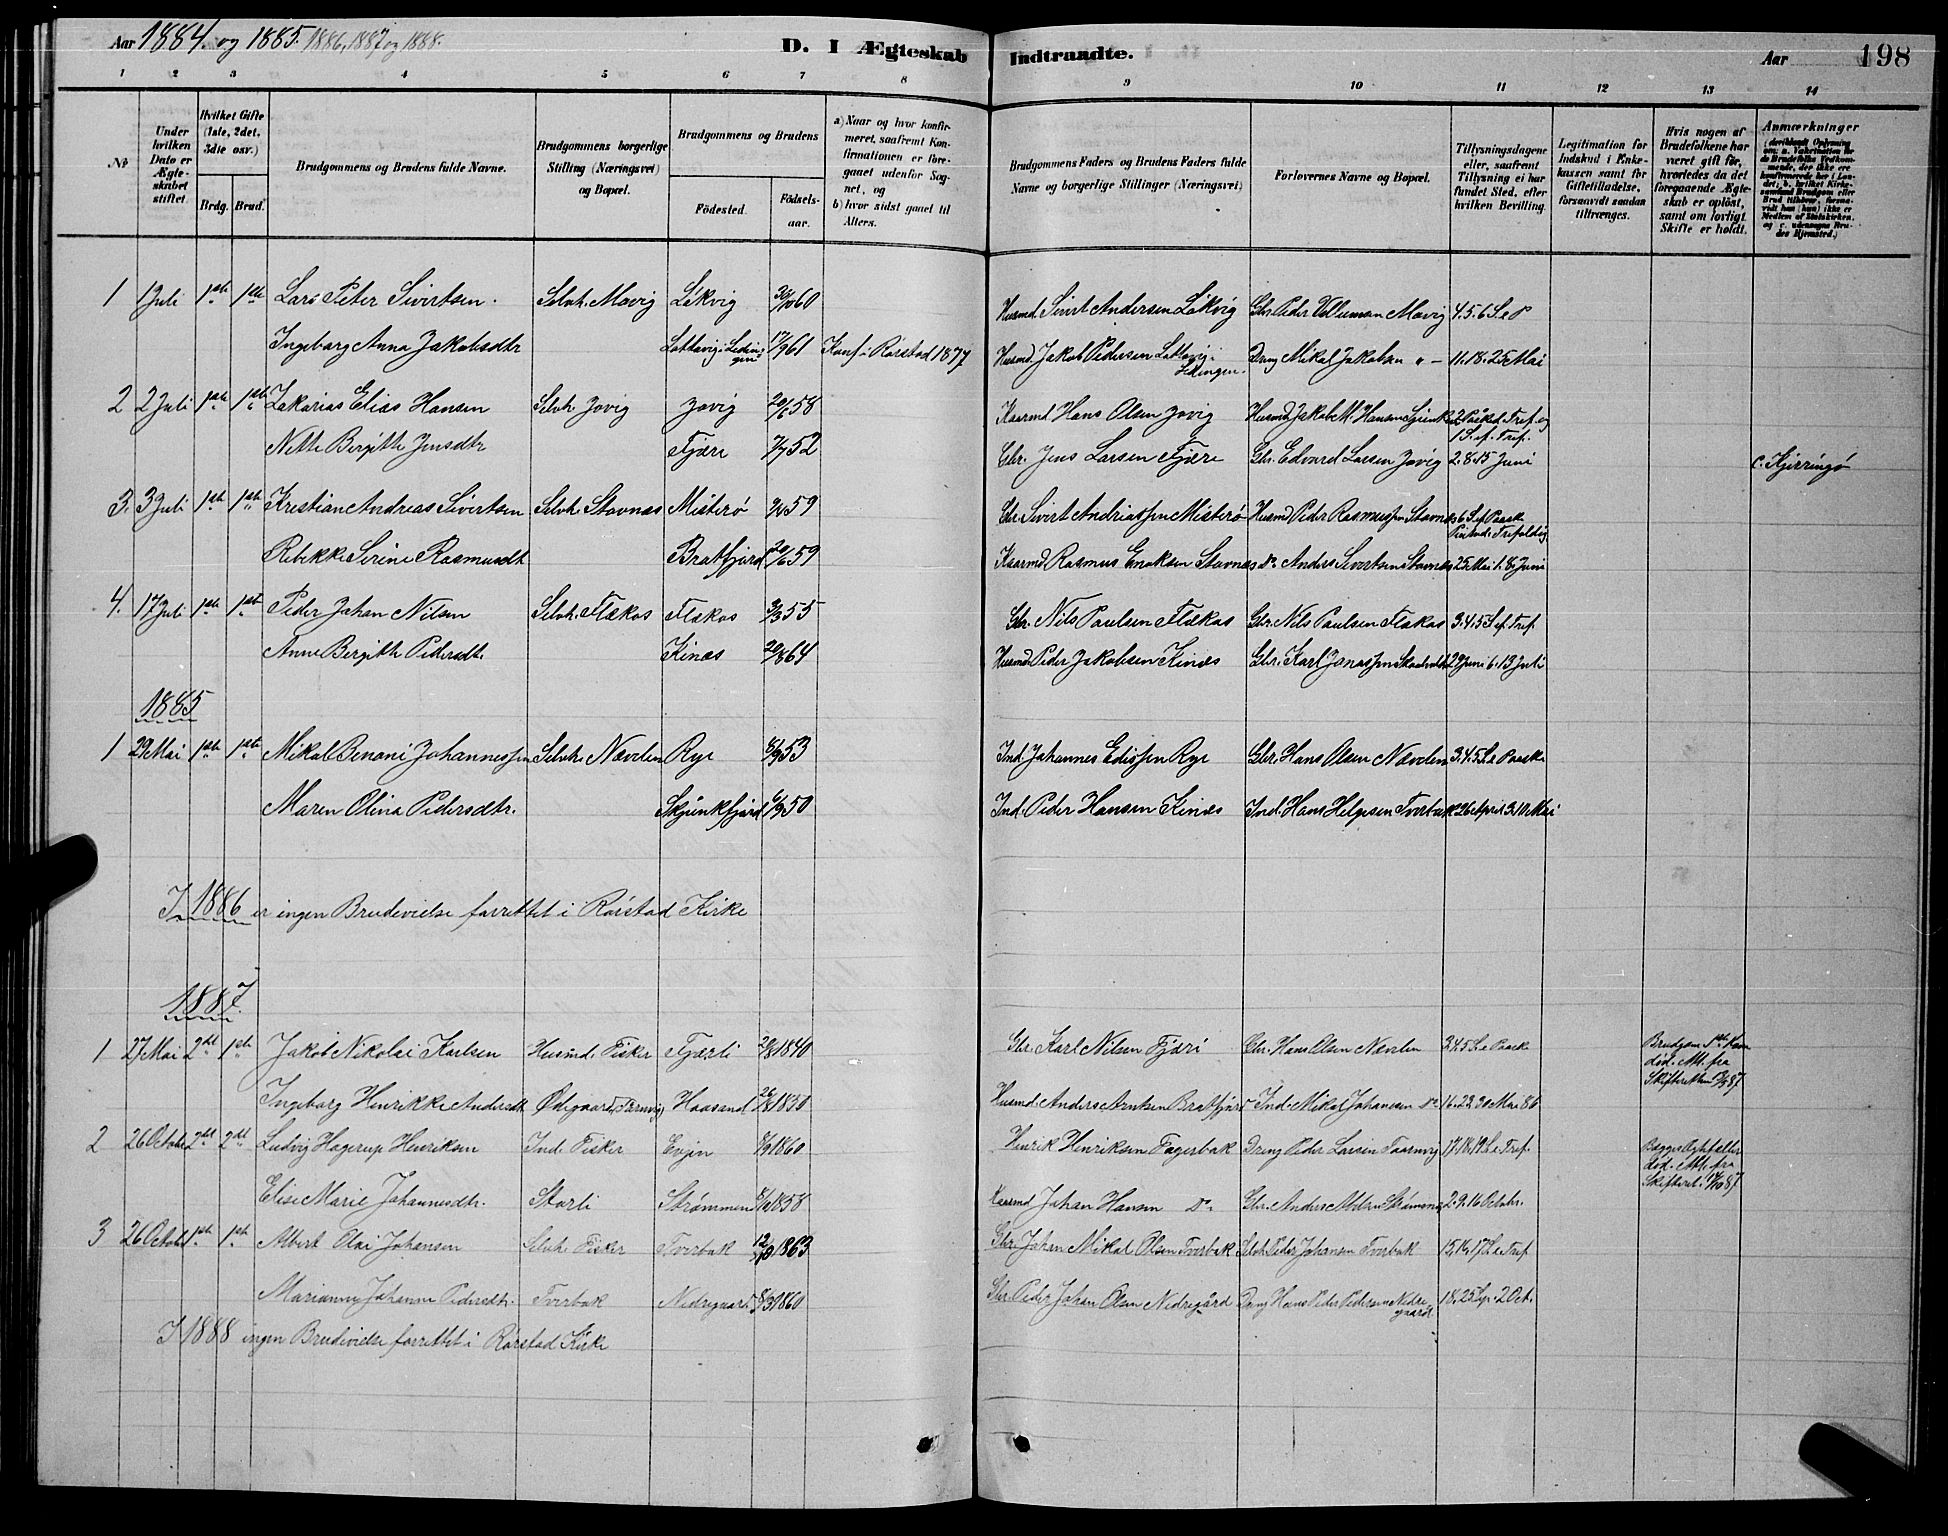 Aar 1884 og 1885. 1886, 1887 og 1888.
D. I Ægteskab Indtraadte.
Aar 198
1 2 3 4 5 6 7 8 9 10 11 12 13 14
No
Under hvilken Dato er Ægteskabet stiftet.
Hvilket Gifte (1ste, 2det, 3die osv.)
Brdg. Brud.
Brudgommens og Brudens fulde Navne.
Brudgommens borgerlige Stilling (Næringsvei) og Bopæl.
Brudgommens og Brudens
Födested. Födselsaar.
a) Naar og hvor konfirmeret, saafremt Konfirmationen er foregaaet udenfor Sognet, og
b) hvor sidst gaaet til Alters.
Brudgommens Faders og Brudens Faders fulde Navne og borgerlige Stillinger (Næringsvei)
Forlovernes Navne og Bopæl.
Tillysningsdagene eller, saafremt Tillysning ei har fundet Sted, efter hvilken Bevilling.
Legitimation for Indskud i Enkekassen samt for Giftetilladelse, forsaavidt saadan tiltrænges.
Hvis nogen af Brudefolkene har været gift för, hvorledes da det foregaaende Ægteskab er oplöst, samt om lovligt Skifte er holdt.
Anmærkninger
1 1 Juli 1ste 1ste Lars Peter Sivertsen. Selvh. Movig Løkvig 60 Husmd. Sivert Andersen Løkvig Gbr. Peder Movig 4.5.6 S. e P
Ingeborg Anna Jakobsdtr Lottavig i Lødingen 17/9 61 Konf. i Rørstad 1877 Husmd. Jakob Pedersen Lottavig i Lødingen. Dreng Mikal Jakobsen " 11. 18. 25 Mai
2 2 Juli 1ste 1ste Zakarias Elias Hansen Selvh. Jovig Jovig 58 Kaarmd Hans Olsen Jovig Husmd. Jakob M. Hansen 2 Paaskd. Tref. og 1 S. ef. Tref.
Nette Bergitte Jensdtr Fjære 7/7 52 Gbr. Jens Larsen Fjære Gbr. Edvard Larsen Jovig 2. 8. 15 Juni c. Kjerringø
3. 3 Juli 1ste 1ste Kristian Andreas Sivertsen Selvh. Stavnæs Misterø 59 Gbr. Sivert Andriassen Misterø Husmd Peder Rasmussen Stavnæs 6 S. ef. Paaske Pintsed. Trefoldig.
Rebekke Serine Rasmusdt Bratfjord 20/6 59 Kaarmd. Rasmus Enoksen Stavnæs do Anders Sivertsen Stavnæs 25 Mai 1. 8. Juni
4. 17 Juli 1ste 1ste Peder Johan Nilsen Selvh. Flækos Flækos 3/3 55 Gbr. Nils Paulsen Flækos Gbr. Nils Paulsen Flækos 3. 4. 5 S. ef. Tref.
Anne Bergitte Pedersdtr. Kines 20/8 64 Husmd. Peder Jakobsen Kinæs Gbr. Karl Jonassen 29 Juni 6. 13 Juli
1885
1 29 Mai 1ste 1ste Mikal Benoni Johannessen Selvh. Nævelen Rye 8/9 53 Ind. Johannes Edissen Rye Gbr. Hans Olsen Nævelen 3. 4. 5 S. e Paaske
Maren Olina Pedersdtr. Skjunkfjord 6/9 50 Ind. Peder Hansen Kinæs Ind. Hans Helgesen Tverbak 26 April 3. 10 Mai
I 1886 er ingen Brudevielse forrettet i Rørstad Kirke
1887.
1 27 Mai 2det 1ste Jakob Nikolai Karlsen Husmd. Fisker Fjærli 1840 Gbr. Karl Nilsen Fjæri Gbr. Hans Olsen Nævelen 3. 4. 5 S. e Paaske Brudgom. 1ste Kone død. Att. fra Skifteretten 87
Ingeborg Henrikke Andersdt Ødegaard, Tårnvig Haasand 1830 Husmd. Anders Arntsen Bratfjord Ind. Mikal Johansen do 16. 23. 30 Mai 86
2 26 Octobr 2det 2det Ludvig Hagerup Henriksen Ind. Fisker Evjen 8/9 1860 Henrik Henriksen Fagerbak Dreng Peder Larsen Taarnvig 17. 18. 19 S. e Tref. Begges Ægtefæller død. Att. fra Skifteret. 87
Elise Marie Johannesdtr. Storli Strømmen 1858 Kaarmd Johan Hansen do Gbr. Anders Strømmen 2. 9. 16 Octobr.
3 26 Octobr 1ste 1ste Albert Olai Johansen Selvh. Fisker Tverbak 1863 Gbr. Johan Mikal Olsen Tverbak Selvh. Peder Johansen Tverbak 15, 16, 17 S. e Tref
Marianne Johanne Pedersdtr. Tverbak Nedregaard 8/3 1860 Gbr. Peder Johan Olsen Nedregård Dreng Hans Peder Pedersen Nedregaard 18. 25 Sep. 2 Oct.
I 1888 ingen Brudevielse forrettet i Rørstad Kirke